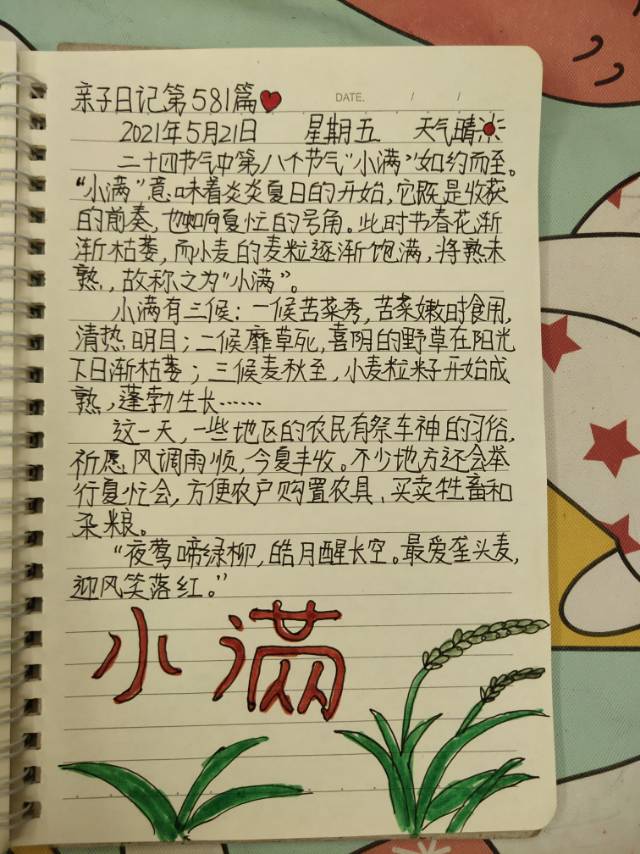 亲子日记第581篇
DATE. / /
2021年5月21日 星期五 天气晴
二十四节气中第八个节气"小满"如约而至。
"小满"意味着炎炎夏日的开始,它既是收获
的前奏,也响夏忙的号角。此时书春花渐
渐枯萎,而小麦的麦粒逐渐饱满,将熟未
熟,故称之为"小满"。
小满有三候:一候苦菜秀,苦菜嫩时食用,
清热明目;二候靡草死,喜阴的野草在阳光
下日渐枯萎;三候麦秋至,小麦粒籽开始成
熟,蓬勃生长……
这一天,一些地区的农民有祭车神的习俗,
祈愿风调雨顺,今夏丰收。不少地方还会举
行夏忙会,方便农户购置农具、买卖牲畜和
杂粮。
"夜莺啼绿柳,皓月醒长空。最爱垄头麦,
迎风笑落红。"
小满